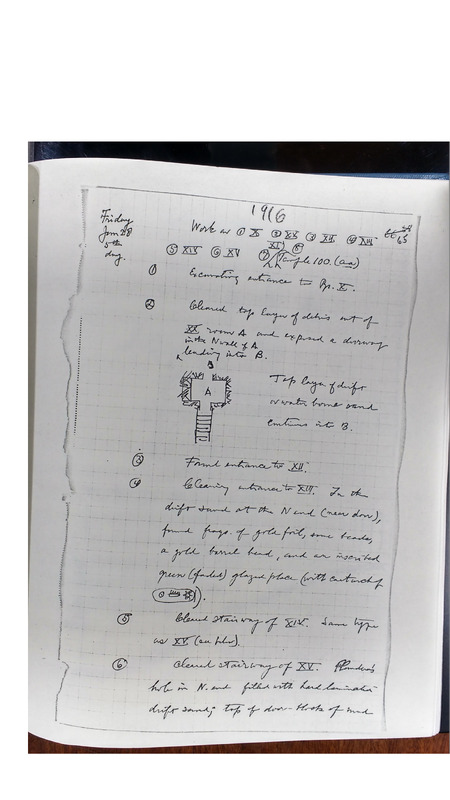 1916
Friday
Jan 28
5th
day.
Work on ① X ② XX ③ XII ④ XIII
⑤ XIV ⑥ XV
⑦ Temple 100.
① Excavating entrance to Pyr. X.
② Cleared top layer of debris out of
XX room A and exposed a doorway
in the N wall of A
leading into B.
A
Top layer of drift
water borne sand
continues into B.
③ Found entrance to XII.
④ Clearing entrance to XIII. In the
drift sand at the N end (near door),
found frags. of gold foil, some beads,
a gold barrel bead, and an inscribed
green (faded) glazed plaque (with cartouche of
).
⑤ Cleared stairway of XIV. Same type
as XV
⑥ Cleared stairway of XV. Plunderer's
hole in N. end filled with hard laminated
drift sand; top of door-block of mud